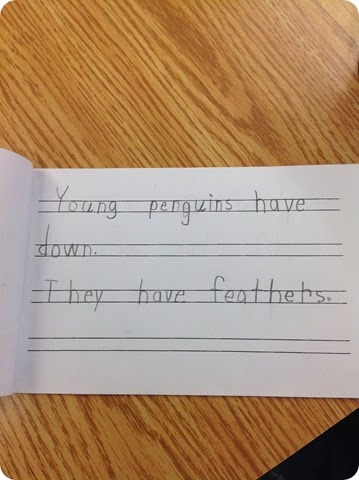 Young penguins have
down.
They have feathers.